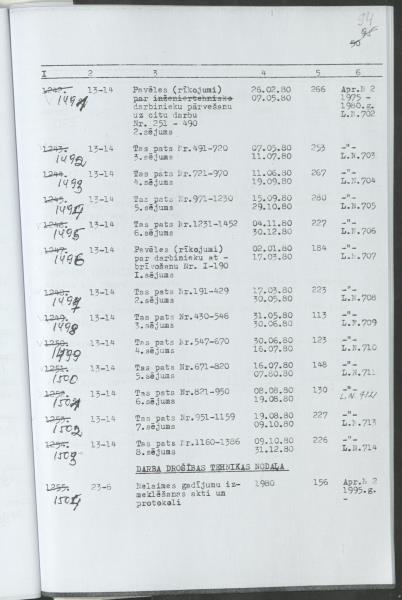 94
90
I 2 3 4 5 6
1242. 13-14 Pavēles (rīkojumi) 26.02.80 266 Apr.N 2
par inženiertehnisko 07.05.80 1975 -
darbinieku pārvešanu 1980.g.
uz citu darbu L.N.702
Nr. 251 - 490
2.sējums
1243. 13-14 Tas pats Nr.491-720 07.05.80 253 -"-
1492 3.sējums 11.07.80 L.N.703
1244. 13-14 Tas pats Nr.721-970 11.06.80 267 -"-
1493 4.sējums 19.09.80 L.N.704
1245. 13-14 Tas pats Nr.971-1230 15.09.80 280 -"-
1494 5.sējums 29.10.80 L.N.705
1246. 13-14 Tas pats Nr.1231-1452 04.11.80 227 -"-
1495 6.sējums 30.12.80 L.N.706
1247. 13-14 Pavēles (rīkojumi) 02.01.80 184 -"-
1496 par darbinieku at - 17.03.80 L.N.707
brīvošanu Nr. I-190
I.sējums
1248. 13-14 Tas pats Nr.191-429 17.03.80 223 -"-
1497 2.sējums 30.05.80 L.N.708
1249. 13-14 Tas pats Nr.430-546 31.05.80 113 -"-
1498 3.sējums 30.06.80 L.N.709
1250. 13-14 Tas pats Nr.547-670 30.06.80 123 -"-
1499 4.sējums 16.07.80 L.N.710
1251. 13-14 Tas pats Nr.671-820 16.07.80 148 -"-
1500 5.sējums 07.80.80 L.N.711
1252. 13-14 Tas pats Nr.821-950 08.08.80 130 -"-
1501 6.sējums 19.08.80 L.N.
1253. 13-14 Tas pats Nr.951-1159 19.08.80 227 -"-
1502 7.sējums 09.10.80 L.N.713
1254. 13-14 Tas pats Nr.1160-1386 09.10.80 226 -"-
1503 8.sējums 31.12.80 L.N.714
DARBA DROŠĪBAS TEHNIKAS NODAĻA
1255. 23-6 Nelaimes gadījumu iz- 1980 156 Apr.N 2
1504 meklēšanas akti un 1995.g.
protokoli -